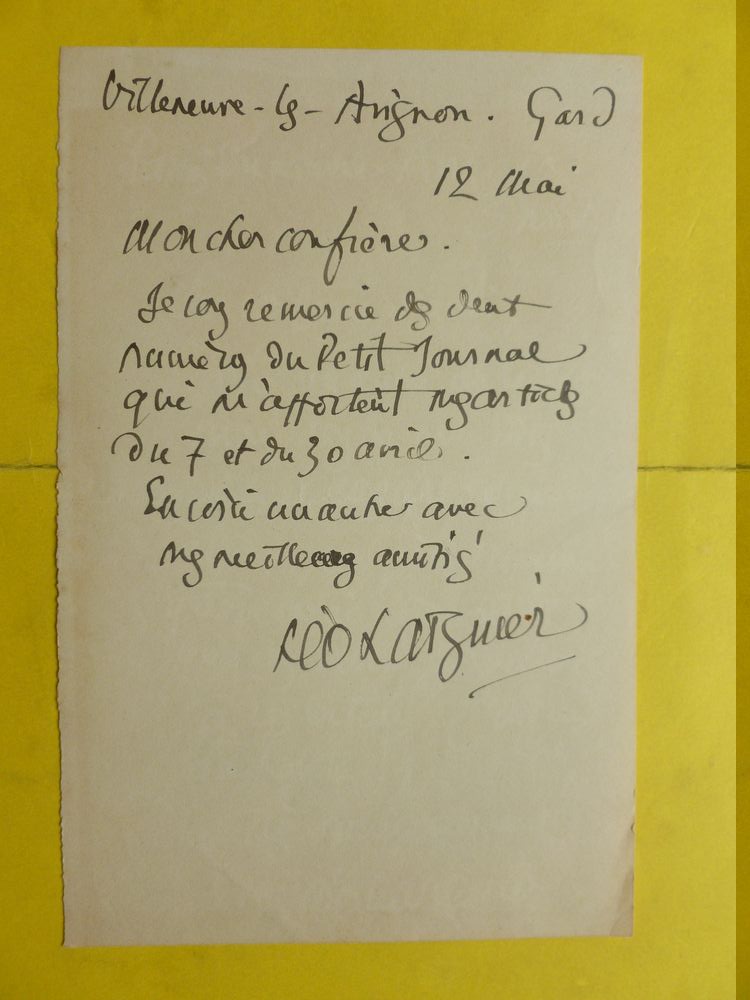 Villeneuve-lès-Avignon. Gard
12 Mai
Mon cher confrère.
Je vous remercie des deux
numéros du Petit Journal
qui m'apportent mes articles
du 7 et du 30 avril.
Encore un autre avec
mes meilleures amitiés
Léo Larguier